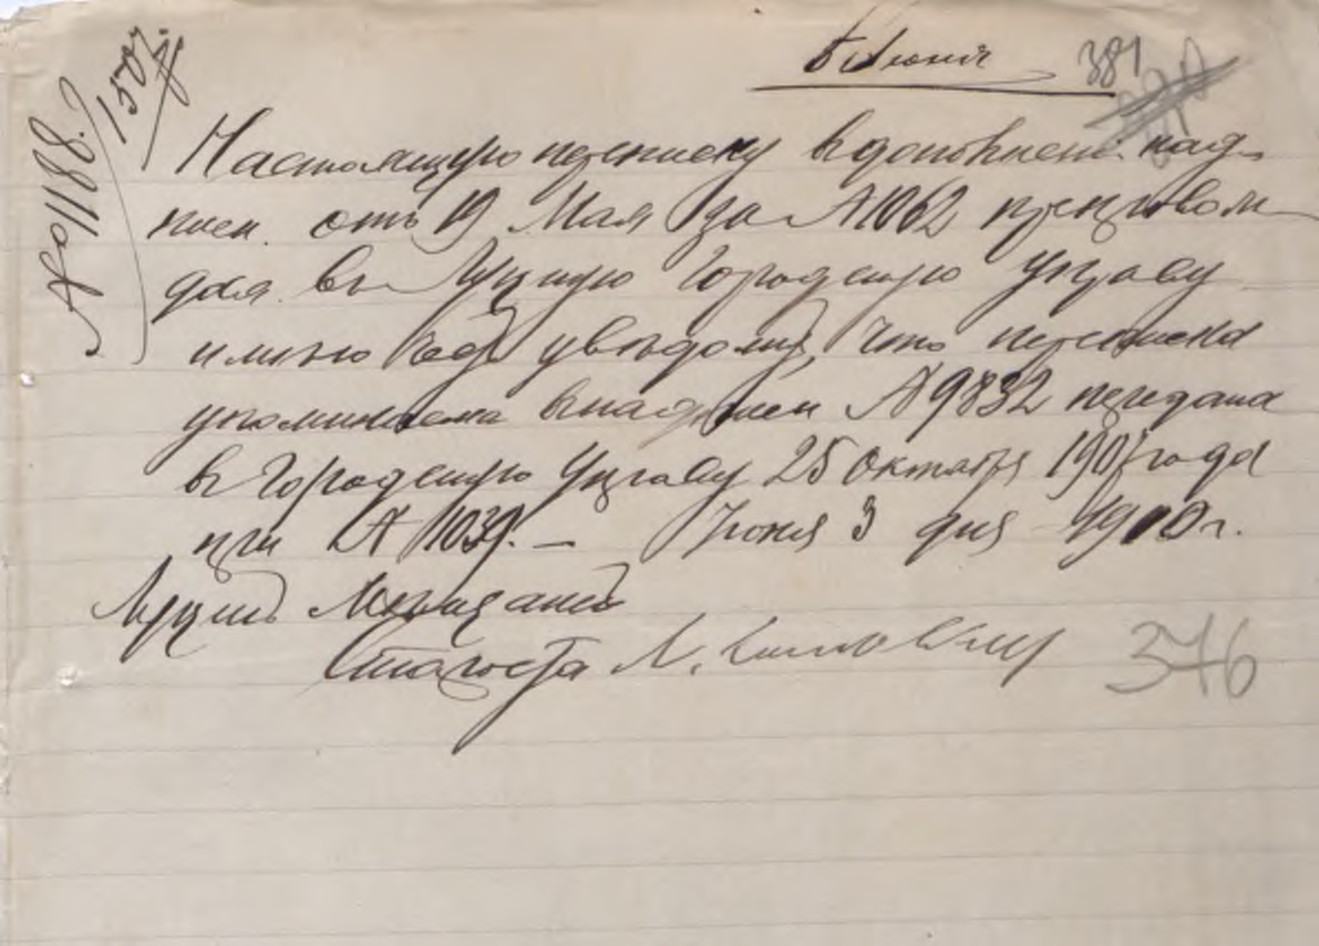 6 Июня 381
№ 1188.
150
Настоящую переписку въ дополненіе над-
писи отъ 19 Мая за № 1062 препровож
дая въ Луцкую Городскую Управу
имѣю увѣдомить, что переписка
упоминаемая въ надписи № 9832 передана
въ Городскую Управу 25 Октября 1907 года
при № 1039. — Іюня 3 дня 1910 г.
Луцкій Мѣщанскій
Староста
376